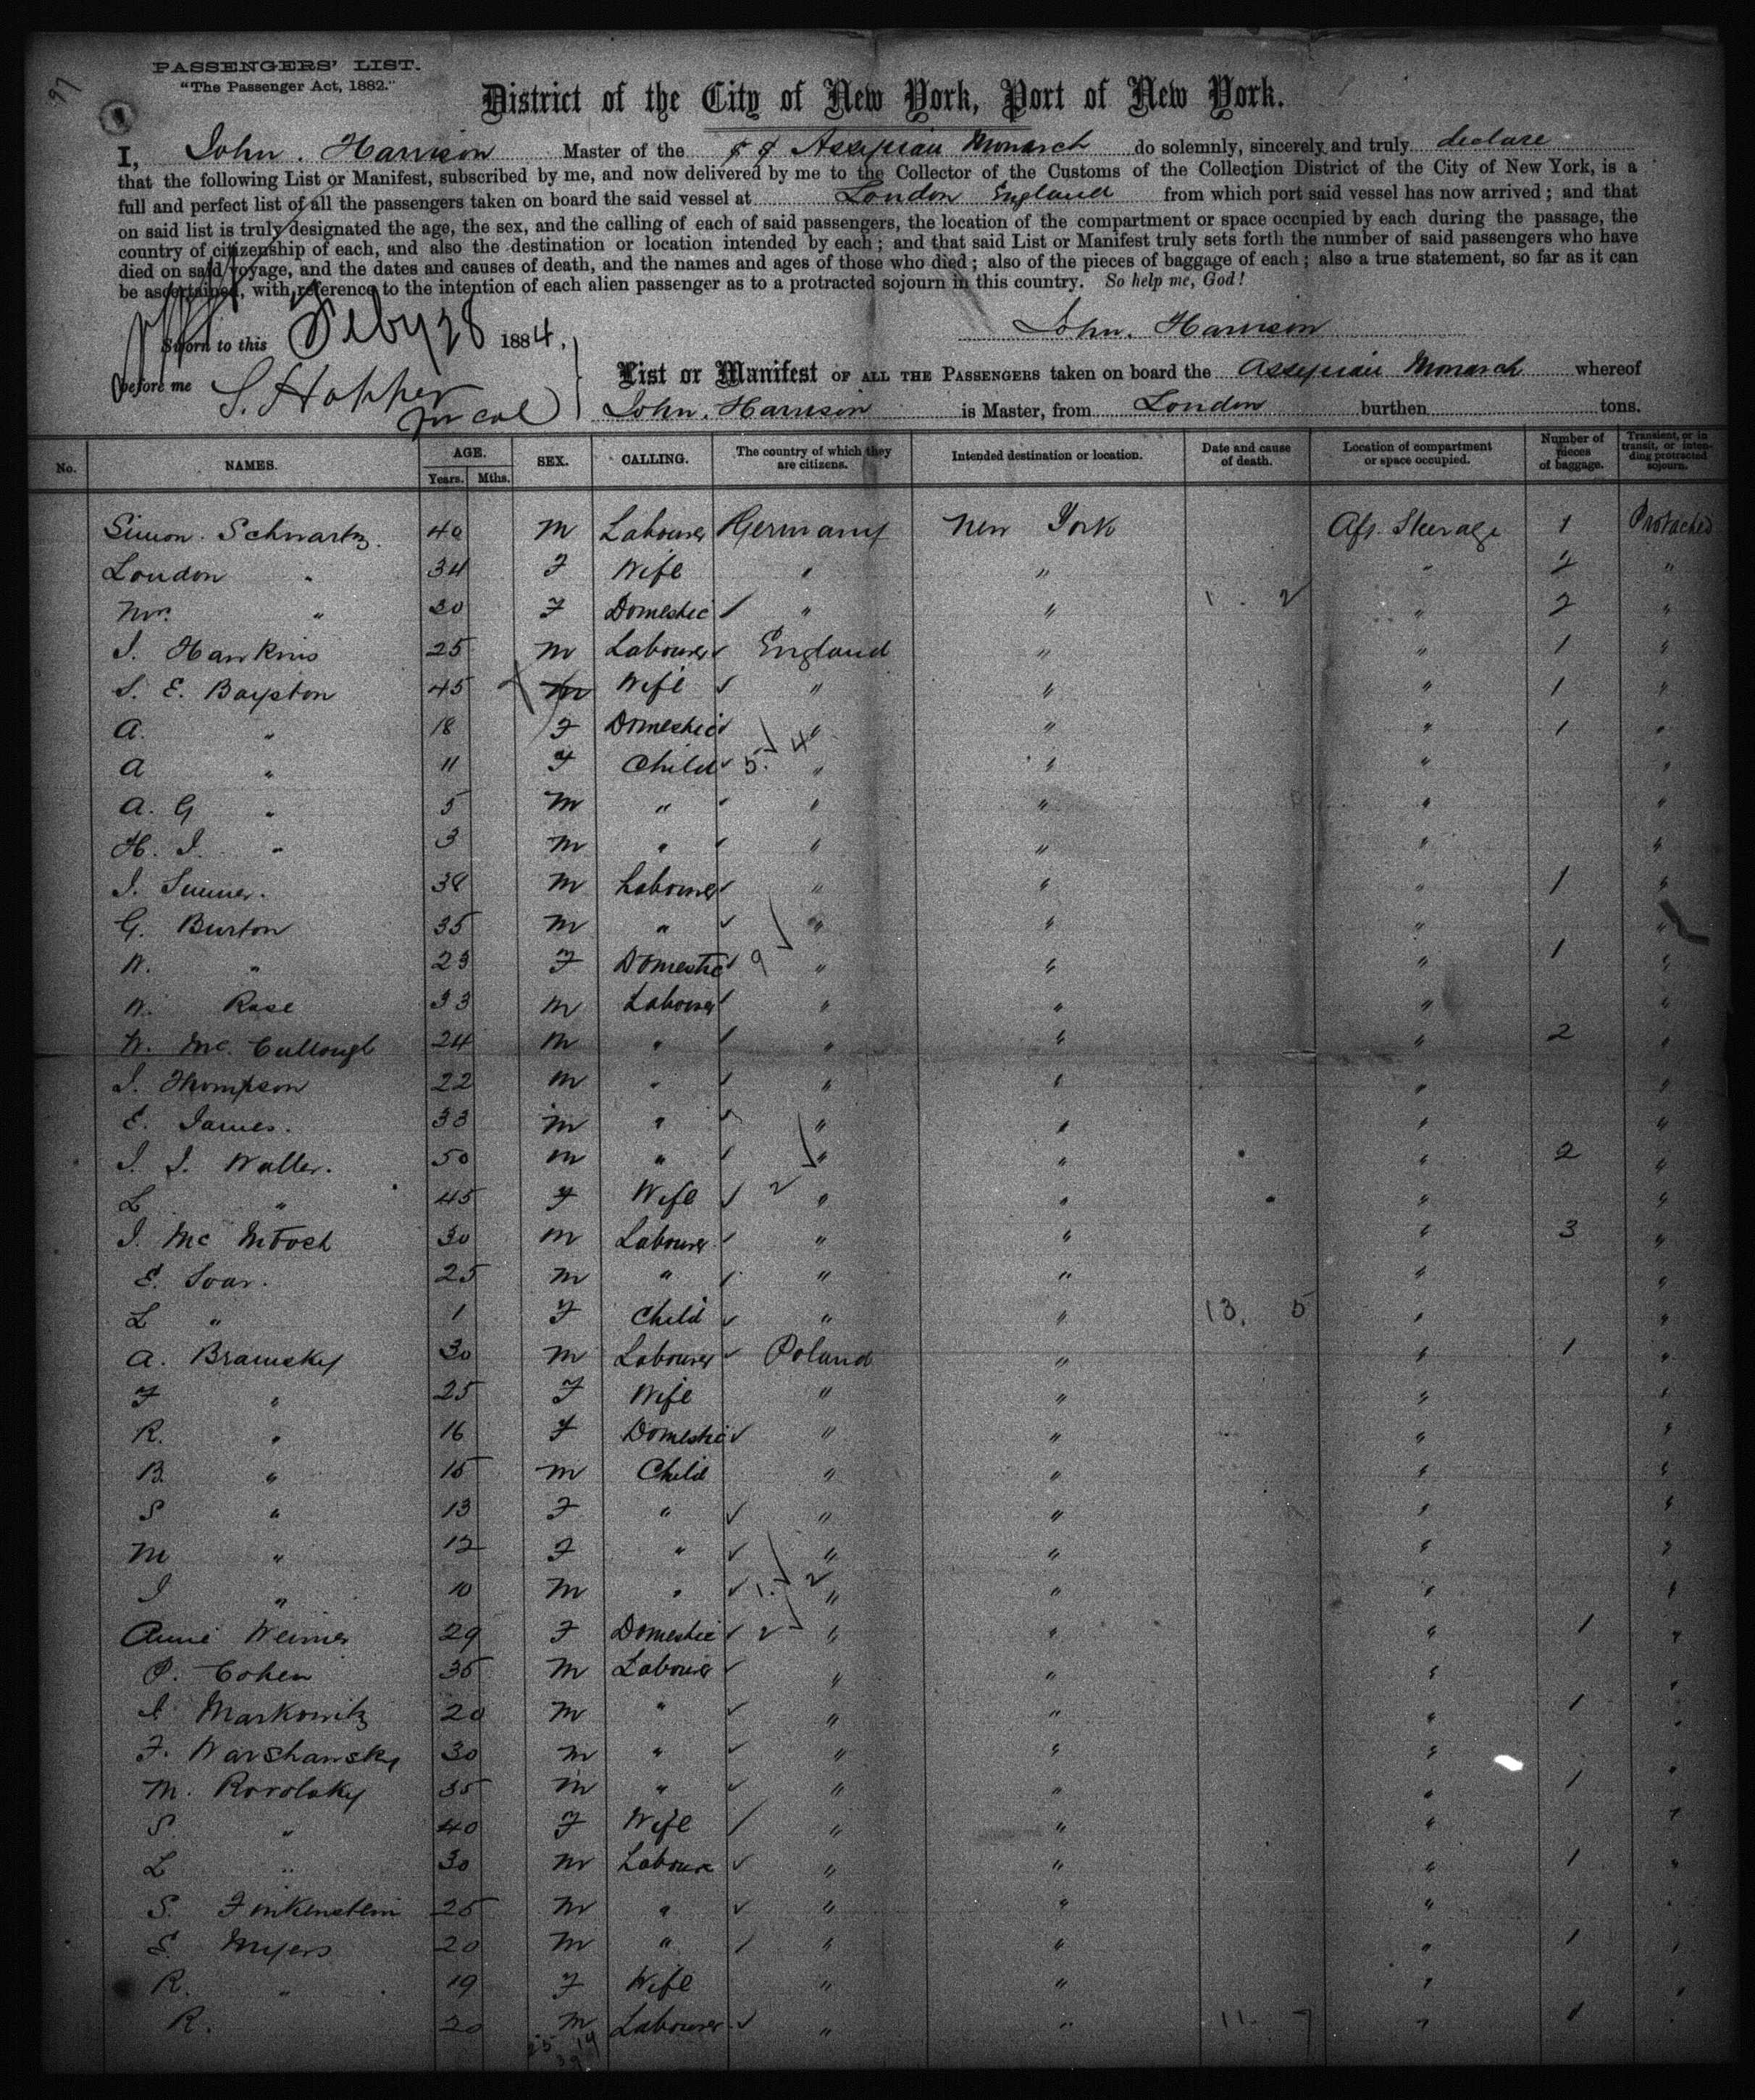 97
PASSENGERS' LIST.
"The Passenger Act, 1882."
District of the City of New York, Port of New York.
I, John. Harrison Master of the S S Assyrian Monarch do solemnly, sincerely and truly declare
that the following List or Manifest, subscribed by me, and now delivered by me to the Collector of the Customs of the Collection District of the City of New York, is a
full and perfect list of all the passengers taken on board the said vessel at London England from which port said vessel has now arrived; and that
on said list is truly designated the age, the sex, and the calling of each of said passengers, the location of the compartment or space occupied by each during the passage, the
country of citizenship of each, and also the destination or location intended by each; and that said List or Manifest truly sets forth the number of said passengers who have
died on said voyage, and the dates and causes of death, and the names and ages of those who died; also of the pieces of baggage of each; also a true statement, so far as it can
be ascertained, with reference to the intention of each alien passenger as to a protracted sojourn in this country. So help me, God!
John. Harrison
Sworn to this Feby 28 1884,
before me S. Hopper
List or Manifest OF ALL THE PASSENGERS taken on board the Assyrian Monarch whereof
John. Harrison is Master, from London burthen tons.
No. NAMES. AGE. Years. Mths. SEX. CALLING. The country of which they are citizens. Intended destination or location. Date and cause of death. Location of compartment or space occupied. Number of pieces of baggage. Transient, or in transit, or intending protracted sojourn.
Simon. Schwartz. 40 M Labourer Germany New York Aft. Steerage 1 Protracted
London " 34 F Wife " " " 2 "
" 20 F Domestic " " 1 . 2 " 2 "
J. Hawkins 25 M Labourer England " " 1 "
S. E. Boyston 45 M Wife " " " 1 "
A. " 18 F Domestic " " " 1 "
A " 11 F Child 5. 4 " " " "
A. G " 5 M " " " " "
H. J. " 3 M " " " " "
J. Sumner. 38 M Labourer " " " 1 "
G. Burton 35 M " " " " "
W. " 23 F Domestic 9 " " " 1 "
W. Rose 33 M Labourer " " " "
W. Mc. Cullough 24 M " " " " 2 "
J. Thompson 22 M " " " " "
E. James. 33 M " " " " "
J. J. Waller. 50 M " " " " 2 "
L " 45 F Wife 2 " " " "
J. Mc 30 M Labourer " " " 3 "
E. Soar. 25 M " " " " "
L " 1 F Child " " 13. 5 " "
A. Bramsky 30 M Labourer Poland " " 1 "
F " 25 F Wife " " " "
R. " 16 F Domestic " " " "
B. " 15 M Child " " " "
S " 13 F " " " " "
M " 12 F " " " " "
J " 10 M " 1. 2 " " " "
Annie Weiner 29 F Domestic 2 " " " 1 "
P. Cohen 35 M Labourer " " " "
J. Markowitz 20 M " " " " 1 "
F. Warshawsky 30 M " " " " "
M. Rovolsky 35 M " " " " 1 "
S. " 40 F Wife " " " "
L " 30 M Labourer " " " 1 "
S. Finkenstein 25 M " " " " "
S. Myers 20 M " " " " 1 "
R. " 19 F Wife " " " "
R. 20 M Labourer " " 11. 7 " 1
25 14
39